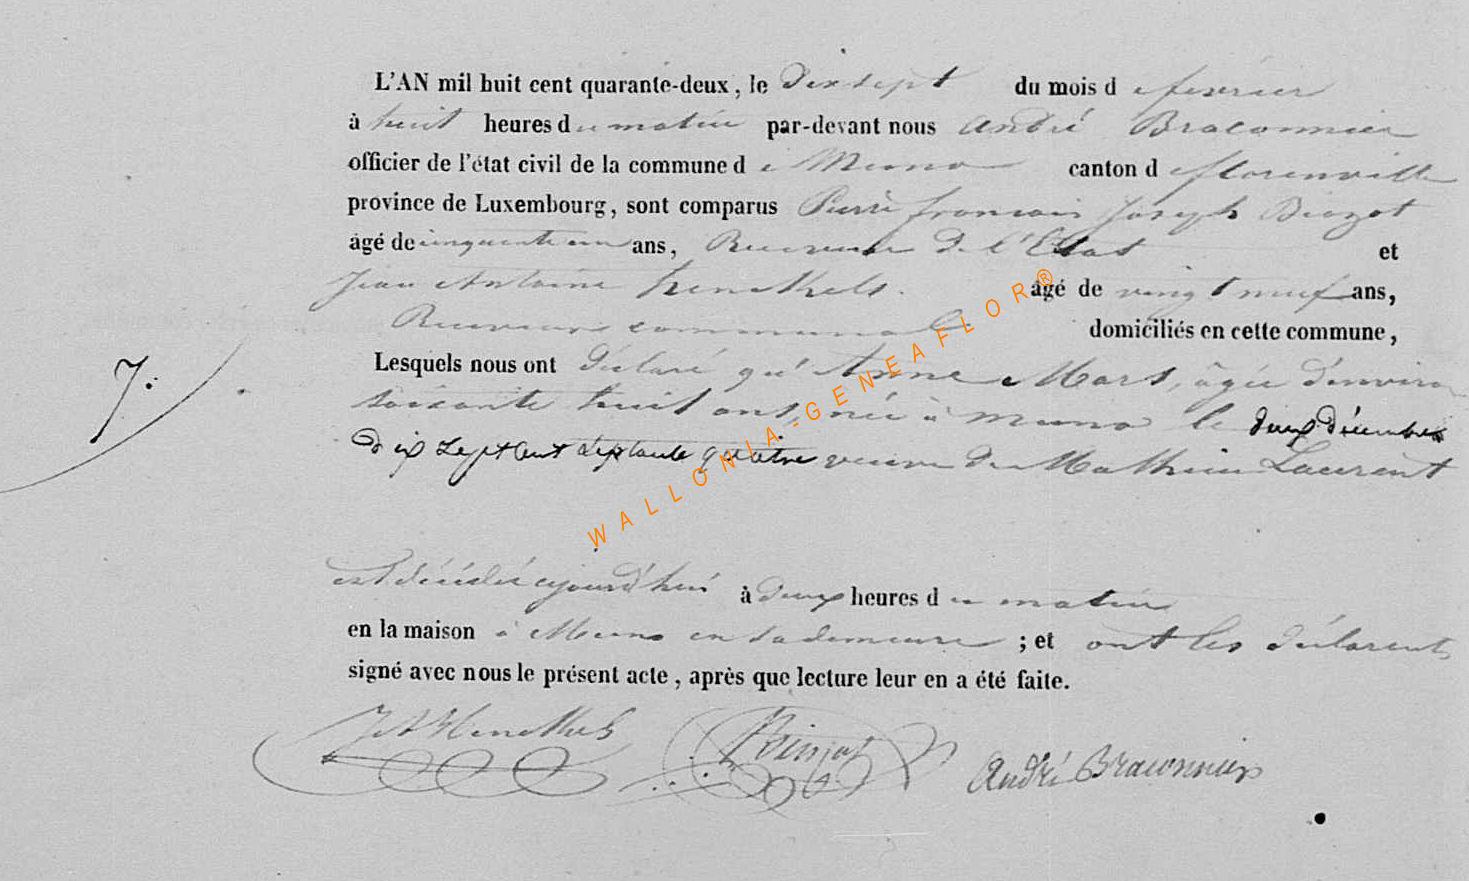 L'AN mil huit cent quarante-deux, le dix sept du mois de fevrier
à huit heures du matin par-devant nous André Braconnier
officier de l'état civil de la commune de Muno canton de florenville
province de Luxembourg, sont comparus Pierre françois Joseph
âgé de cinquante un ans, Receveur de l'Etat et
Jean Antoine âgé de vingt neuf ans,
Receveur communal domiciliés en cette commune,
7.
Lesquels nous ont déclaré qu'Anne Mars, âgée d'environ
soixante huit ans, née à muno le deux décembre
dix sept cent septante quatre veuve de Mathieu Laurent
est décédée ajourd'hui à deux heures du matin
en la maison à Muno en sa demeure ; et ont les déclarents
signé avec nous le présent acte, après que lecture leur en a été faite.
André Braconnier
WALLONIA-GENEAFLOR®